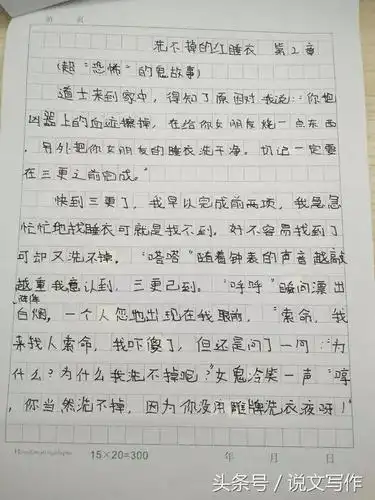 洗不掉的红睡衣 第2章
(超"恐怖"的鬼故事)
道士来到家中，得知了原因对我说："你把
凶器上的血迹擦掉，在给你女朋友烧一点东西
，另外把你女朋友的睡衣洗干净。切记一定要
在三更之前完成。"
快到三更了，我早以完成前两项，我急急
忙忙地找睡衣可就是找不到。好不容易找到了
可却又洗不掉。"嗒嗒"随着钟表的声音越敲
越重我意认到，三更已到。"呼呼"瞬间漂出
阵阵
白烟，一个人忽地出现在我眼前，"索命，我
来找人索命，我吓傻了，但还是问了一问："为
什么？为什么我洗不掉呢？"女鬼冷笑一声"哼
，你当然洗不掉，因为你没用雕牌洗衣夜呀！"
15×20=300 年 月 日
头条号／说文写作